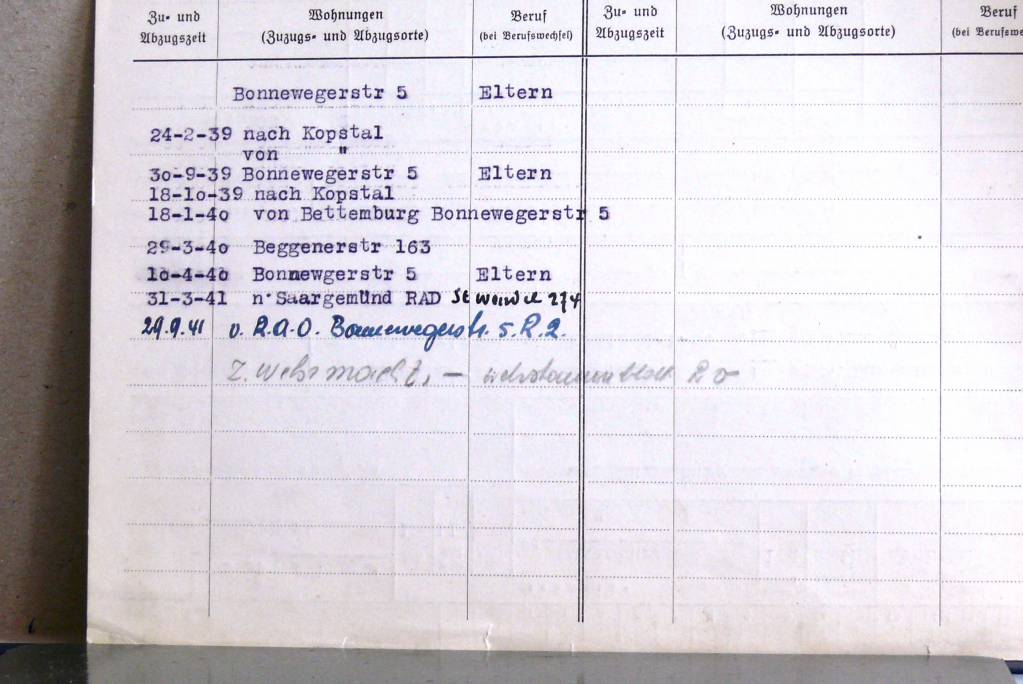 Zu- und Abzugszeit
Wohnungen
(Zuzugs- und Abzugsorte)
Beruf
(bei Berufswechsel)
Zu- und Abzugszeit
Wohnungen
(Zuzugs- und Abzugsorte)
Beruf
(bei Berufswe
Bonnewegerstr 5 Eltern
24-2-39 nach Kopstal
von "
30-9-39 Bonnewegerstr 5 Eltern
18-10-39 nach Kopstal
18-1-40 von Bettemburg Bonnewegerstr 5
29-3-40 Beggenerstr 163
10-4-40 Bonnewgerstr 5 Eltern
31-3-41 n. Saargemünd RAD 274
29.9.41 v. R.A.D. Bonnewegerstr. 5. R.2.
Z. Wehrmacht, —